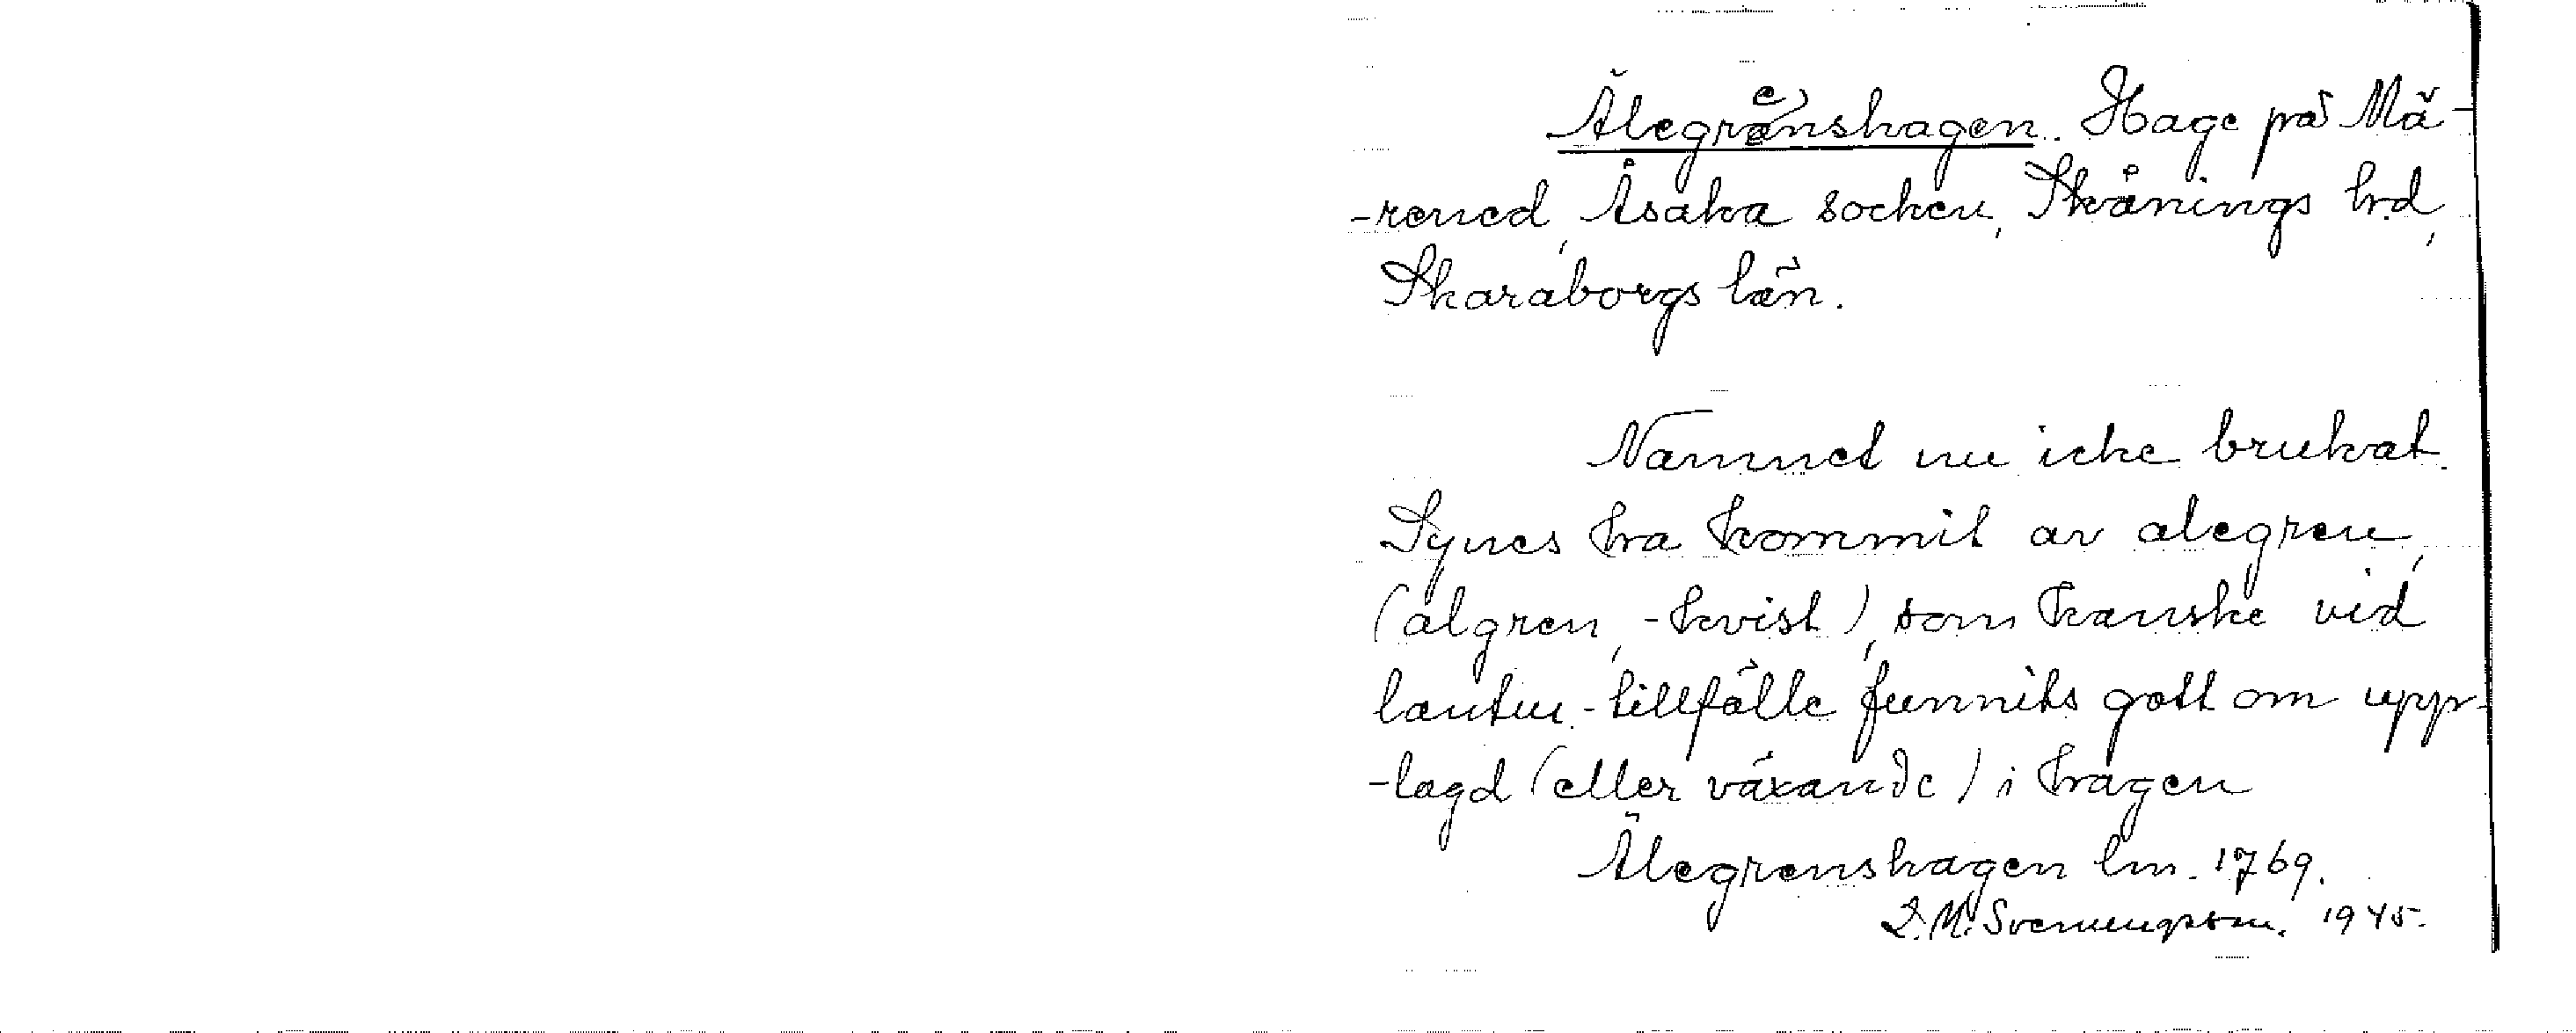 Ålegrenshagen. Hage på Må-
-rened, Åsaka socken, Skånings hd,
Skaraborgs län.
Namnet nu icke brukat.
Synes ha kommit av alegren,
(algren, -kvist), som kanske vid
lantm.-tillfälle funnits gott om upp-
-lagd (eller växande) i hagen
Ålegrenshagen lm. 1769.
1945.